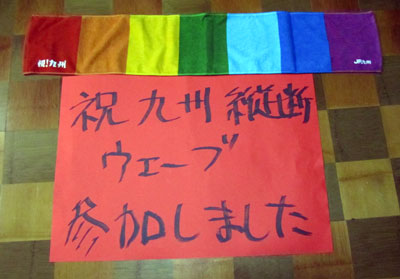 祝!九州
JR九州
祝 九州 縦断
ウェーブ
参加しました